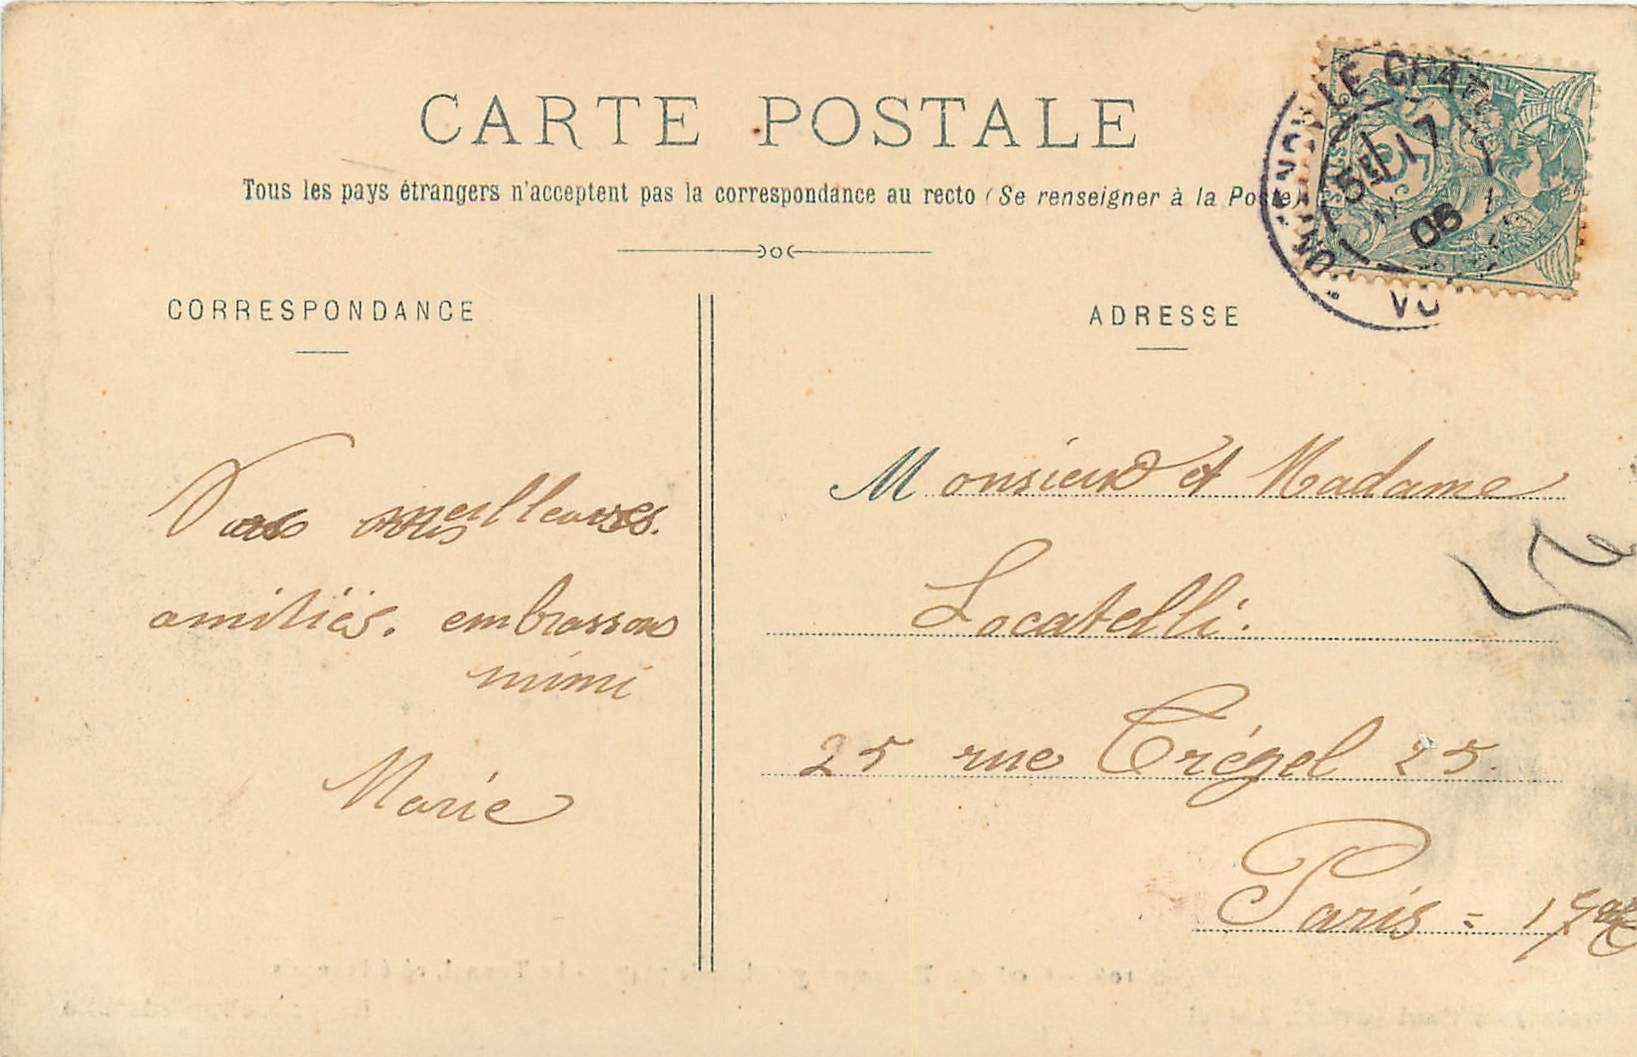 CARTE POSTALE
Tous les pays étrangers n'acceptent pas la correspondance au recto (Se renseigner à la Poste)
CORRESPONDANCE
ADRESSE
LE CHAT
17
06
VO
meilleures
amitiés. embrassons
mimi
Marie
Monsieur et Madame
Locatelli.
25 rue Crégel 25.
Paris =